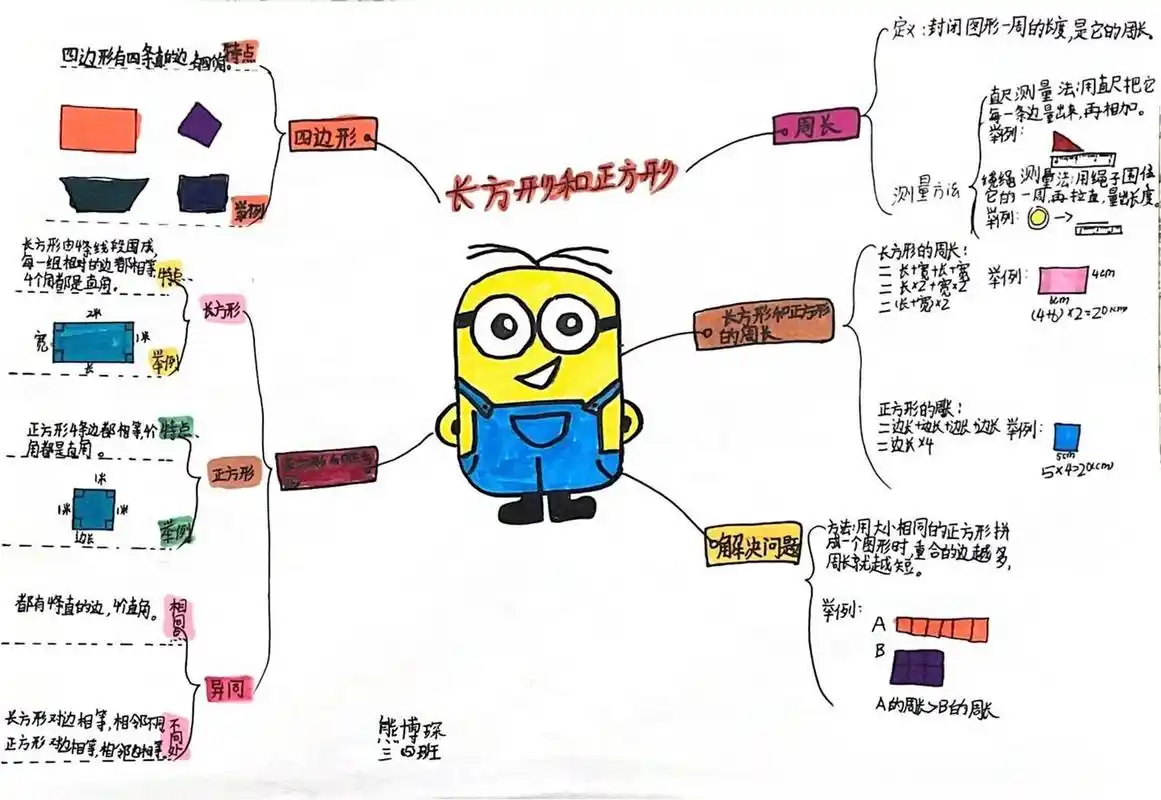 长方形和正方形
四边形
四边形有四条直的边
特点
举例
长方形
长方形由4条线段围成,
每一组相对的边都相等,
4个角都是直角。
特点
2米
宽
1米
长
举例
正方形
正方形4条边都相等,4个
角都是直角。
特点
1米
1米
1米
边长
举例
异同
都有4条直的边,4个直角。
相同
长方形对边相等,相邻不同
正方形对边相等,相邻边相等。
不同处
周长
定义:封闭图形一周的长度,是它的周长。
测量方法
直尺测量法:用直尺把它
每一条边量出来,再相加。
举例:
绕绳测量法:用绳子围住
它的一周,再拉直,量出长度。
举例:
长方形和正方形
的周长
长方形的周长:
=长+宽+长+宽
=长×2+宽×2
=长+宽×2
举例:
4cm
6cm
(4+6)×2=20(cm)
正方形的周长:
=边长+边长+边长+边长
=边长×4
举例:
5cm
5×4=20(cm)
解决问题
方法:用大小相同的正方形拼
成一个图形时,重合的边越多,
周长就越短。
举例:
A
B
A的周长>B的周长
熊博琛
三(四)班